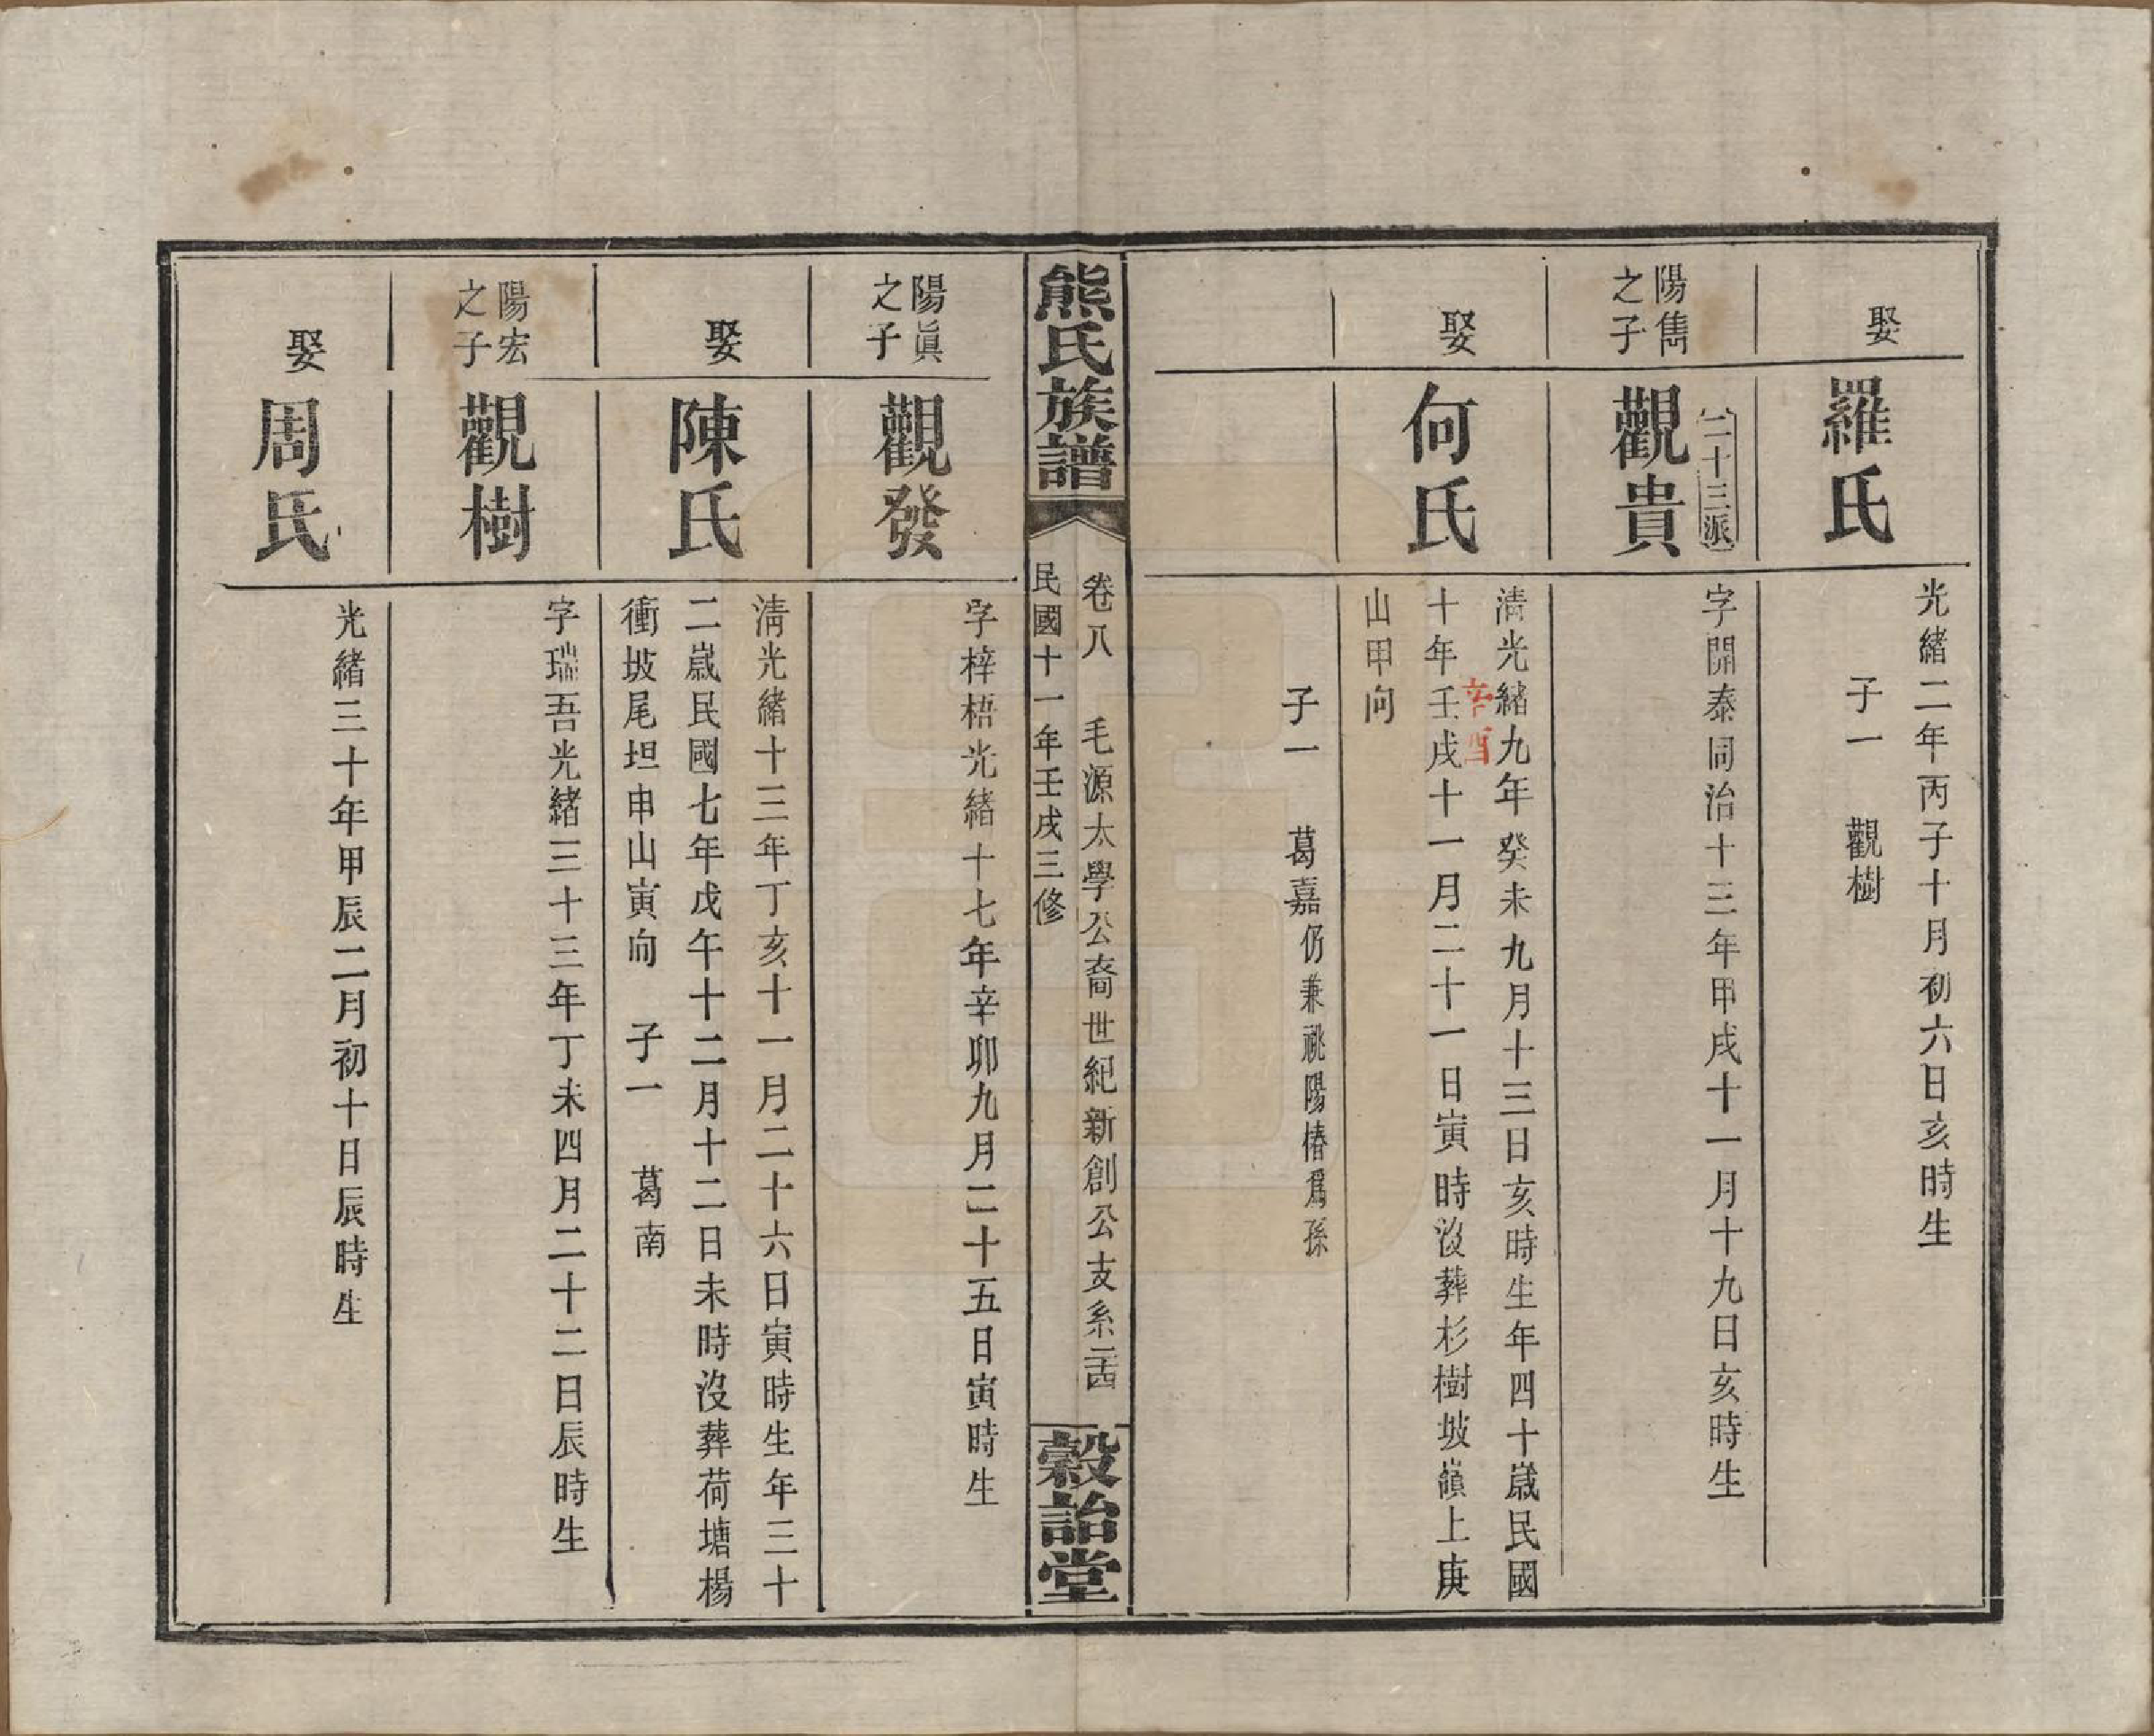 娶
羅氏
光緒二年丙子十月初六日亥時生
子一　觀樹
陽雋
之子
二十三派
觀貴
字開泰同治十三年甲戌十一月十九日亥時生
娶
何氏
清光緒九年癸未九月十三日亥時生年四十歲民國
辛酉
十年壬戌十一月二十一日寅時沒葬杉樹坡嶺上庚
山甲向
子一　葛嘉仍兼祧陽椿爲孫
熊氏族譜
卷八　毛源太學公裔世紀新創公支系
民國十一年壬戌三修
穀詒堂
陽眞
之子
觀發
字梓梧光緒十七年辛卯九月二十五日寅時生
娶
陳氏
清光緒十三年丁亥十一月二十六日寅時生年三十
二歲民國七年戊午十二月十二日未時沒葬荷塘楊
衝坡尾坦申山寅向　子一　葛南
陽宏
之子
觀樹
字瑞吾光緒三十三年丁未四月二十二日辰時生
娶
周氏
光緒三十年甲辰二月初十日辰時生